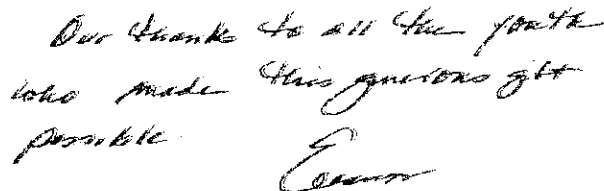 Our thanks to all the youth
who made this generous gift
possible